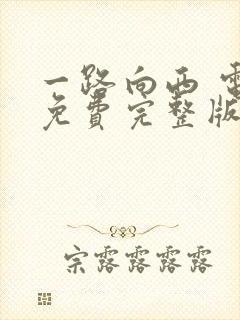 一路向西
免费完整版
宗露露露露